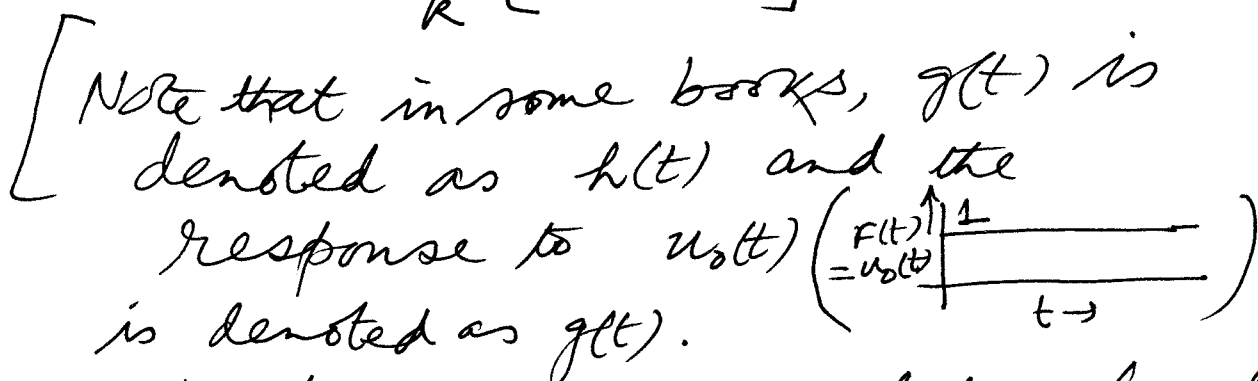 k [ ]
[Note that in some books, g(t) is
denoted as h(t) and the
response to u₀(t) (F(t) = u₀(t) 1 t →)
is denoted as g(t).